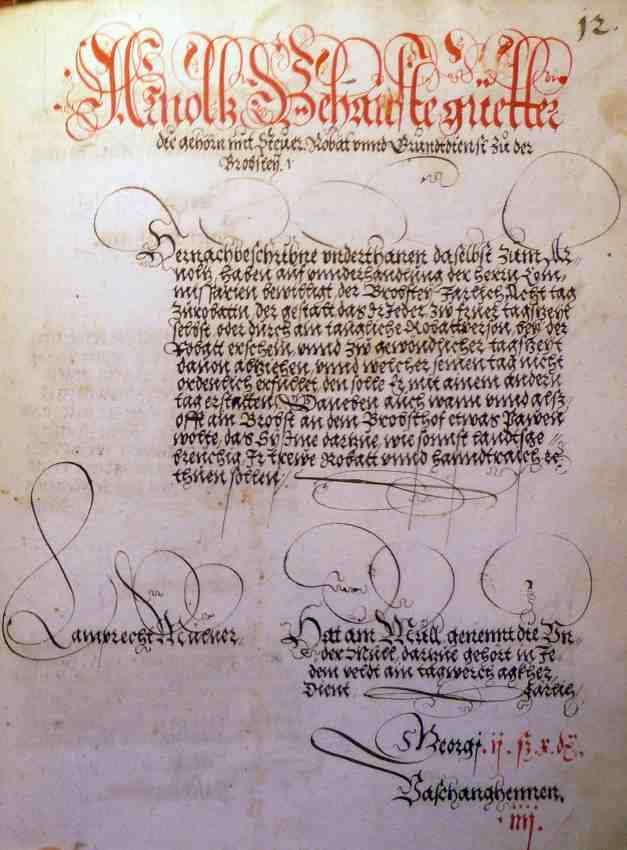 12.
Arnolz Behauste guetter
die gehorn mit Steuer Robat vnnd Grundtdienst zu der
Brobstey.
Hernachbeschribne vnderthanen daselbst zum Ar-
nolz, haben auf vnnderhandlung der herrn Com-
missarien bewilligt der Brobstey Jarlich Acht tag
zurobattn, der gestalt das Jr Jeder zw fruer tagszeyt
selbst oder durch ain taugliche Robattperson, bey der
Robatt erschein, vnnd zw gewondlicher tagszeyt
dauon abziehen, vnnd welcher seinen tag nicht
ordenlich erfullet den solle Er mit ainem andern
tag erstatten, Daneben auch wann vnnd alß
offt am Brobst an dem Brobsthof etwas Pawen
wolte, das Sy Jme darzue, wie sonnst landtsge-
breuchig Jr trewe Robatt vnnd hanndtraich ze
thuen sollen.
Lambrecht Mulner
Hatt am Müll genennt die Un-
der Mull, darzue gehort in Je-
dem veldt am tagwerch agkher
Dient Jarlich
Georgj .ij. ß. x. dʒ.
Vaschanghennen.
.iiij.